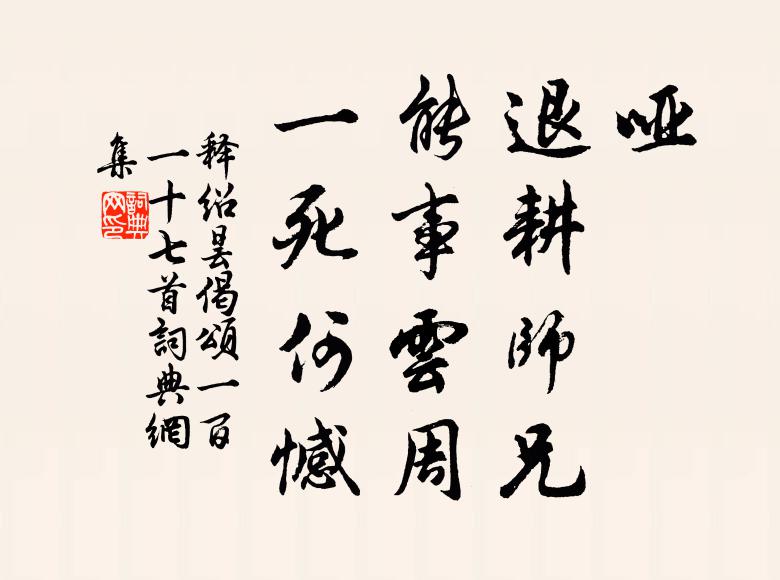 哑
退耕師兄
能事雲周
一死何憾
释绍昙偈頌一百
一十七首詞典網
集
詞典網印